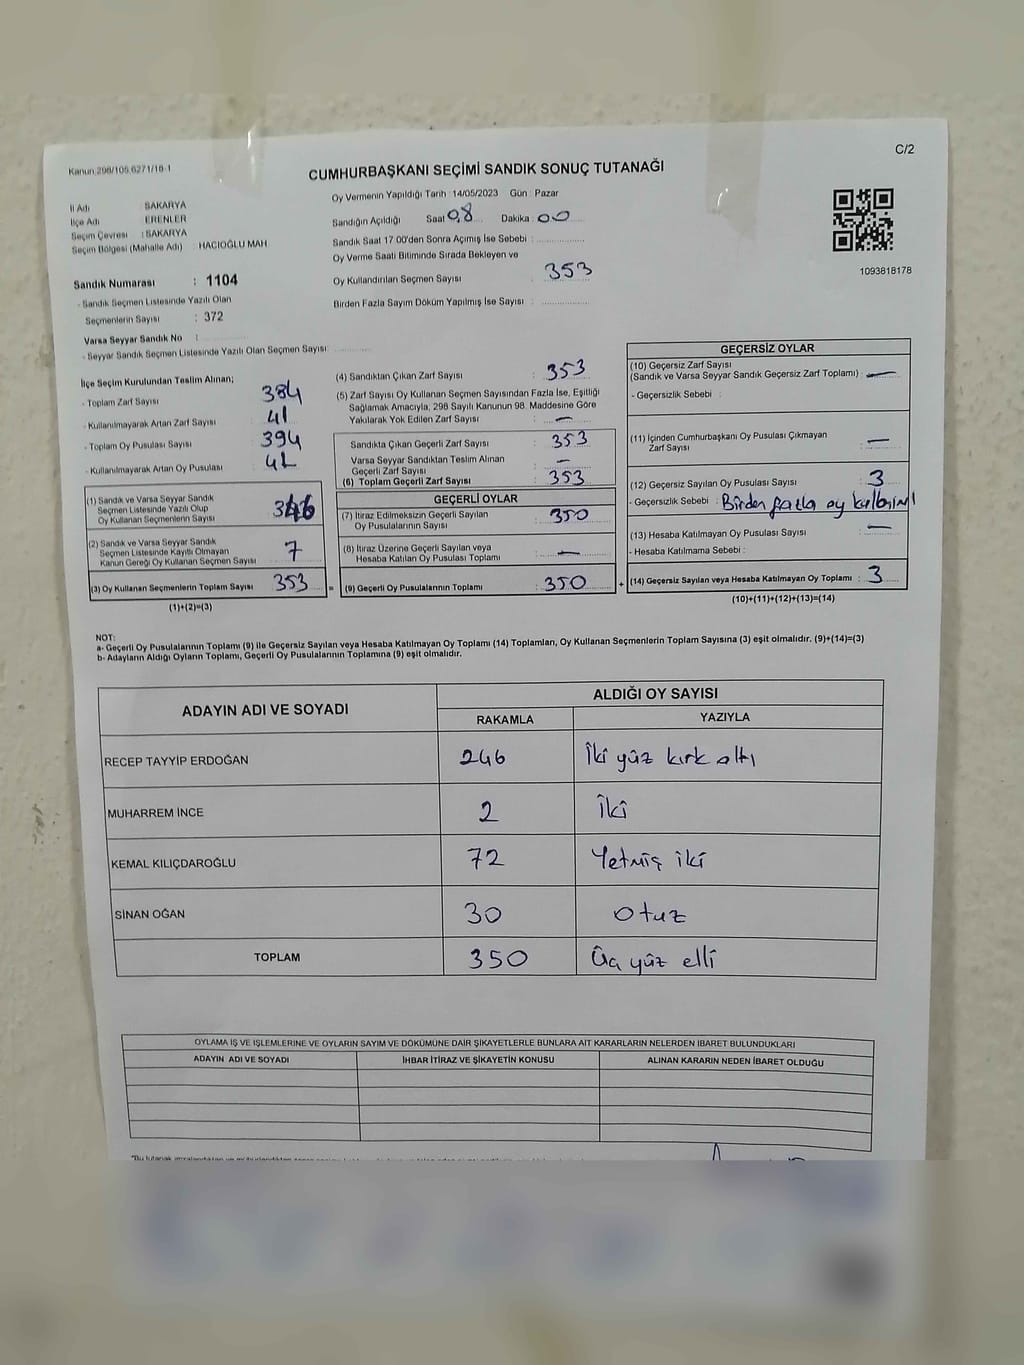 C/2
Kanun 298/105 6271/18-1
CUMHURBAŞKANI SEÇİMİ SANDIK SONUÇ TUTANAĞI
İl Adı SAKARYA
İlçe Adı ERENLER
Seçim Çevresi : SAKARYA
Seçim Bölgesi (Mahalle Adı) : HACIOĞLU MAH
Sandık Numarası : 1104
- Sandık Seçmen Listesinde Yazılı Olan
Seçmenlerin Sayısı : 372
Varsa Seyyar Sandık No :
- Seyyar Sandık Seçmen Listesinde Yazılı Olan Seçmen Sayısı:
Oy Vermenin Yapıldığı Tarih : 14/05/2023 Gün : Pazar
Sandığın Açıldığı Saat 08 Dakika : 00
Sandık Saat 17 00'den Sonra Açımış İse Sebebi :
Oy Verme Saati Bitiminde Sırada Bekleyen ve
Oy Kullandırılan Seçmen Sayısı : 353
Birden Fazla Sayım Döküm Yapılmış İse Sayısı :
1093818178
İlçe Seçim Kurulundan Teslim Alınan;
- Toplam Zarf Sayısı : 384
- Kullanılmayarak Artan Zarf Sayısı : 41
- Toplam Oy Pusulası Sayısı : 394
- Kullanılmayarak Artan Oy Pusulası : 41
(1) Sandık ve Varsa Seyyar Sandık
Seçmen Listesinde Yazılı Olup
Oy Kullanan Seçmenlerin Sayısı : 346
(2) Sandık ve Varsa Seyyar Sandık
Seçmen Listesinde Kayıtlı Olmayan
Kanun Gereği Oy Kullanan Seçmen Sayısı : 7
(3) Oy Kullanan Seçmenlerin Toplam Sayısı : 353 =
(1)+(2)=(3)
(4) Sandıktan Çıkan Zarf Sayısı : 353
(5) Zarf Sayısı Oy Kullanan Seçmen Sayısından Fazla İse, Eşitliği
Sağlamak Amacıyla, 298 Sayılı Kanunun 98. Maddesine Göre
Yakılarak Yok Edilen Zarf Sayısı : —
Sandıkta Çıkan Geçerli Zarf Sayısı : 353
Varsa Seyyar Sandıktan Teslim Alınan
Geçerli Zarf Sayısı : —
(6) Toplam Geçerli Zarf Sayısı : 353
GEÇERLİ OYLAR
(7) İtiraz Edilmeksizin Geçerli Sayılan
Oy Pusulalarının Sayısı : 350
(8) İtiraz Üzerine Geçerli Sayılan veya
Hesaba Katılan Oy Pusulası Toplamı : —
(9) Geçerli Oy Pusulalarının Toplamı : 350 +
GEÇERSİZ OYLAR
(10) Geçersiz Zarf Sayısı
(Sandık ve Varsa Seyyar Sandık Geçersiz Zarf Toplamı) : —
- Geçersizlik Sebebi :
(11) İçinden Cumhurbaşkanı Oy Pusulası Çıkmayan
Zarf Sayısı : —
(12) Geçersiz Sayılan Oy Pusulası Sayısı : 3
- Geçersizlik Sebebi : Birden fazla oy
(13) Hesaba Katılmayan Oy Pusulası Sayısı : —
- Hesaba Katılmama Sebebi :
(14) Geçersiz Sayılan veya Hesaba Katılmayan Oy Toplamı : 3
(10)+(11)+(12)+(13)=(14)
NOT:
a- Geçerli Oy Pusulalarının Toplamı (9) ile Geçersiz Sayılan veya Hesaba Katılmayan Oy Toplamı (14) Toplamları, Oy Kullanan Seçmenlerin Toplam Sayısına (3) eşit olmalıdır. (9)+(14)=(3)
b- Adayların Aldığı Oyların Toplamı, Geçerli Oy Pusulalarının Toplamına (9) eşit olmalıdır.
ADAYIN ADI VE SOYADI ALDIĞI OY SAYISI
RAKAMLA YAZIYLA
RECEP TAYYİP ERDOĞAN 246 İki yüz kırk altı
MUHARREM İNCE 2 İki
KEMAL KILIÇDAROĞLU 72 Yetmiş iki
SİNAN OĞAN 30 otuz
TOPLAM 350 Üç yüz elli
OYLAMA İŞ VE İŞLEMLERİNE VE OYLARIN SAYIM VE DÖKÜMÜNE DAİR ŞİKAYETLERLE BUNLARA AİT KARARLARIN NELERDEN İBARET BULUNDUKLARI
ADAYIN ADI VE SOYADI İHBAR İTİRAZ VE ŞİKAYETİN KONUSU ALINAN KARARIN NEDEN İBARET OLDUĞU